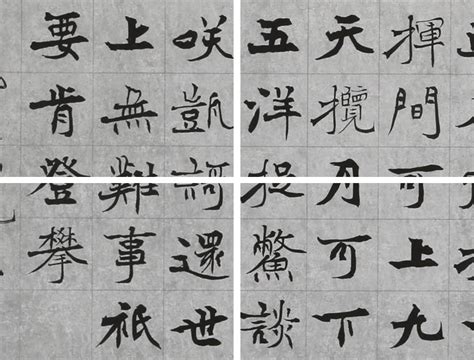 揮間可上九
天攬月可下
五洋捉鱉談
咲凱謌還世
上無難事祇
要肯登攀